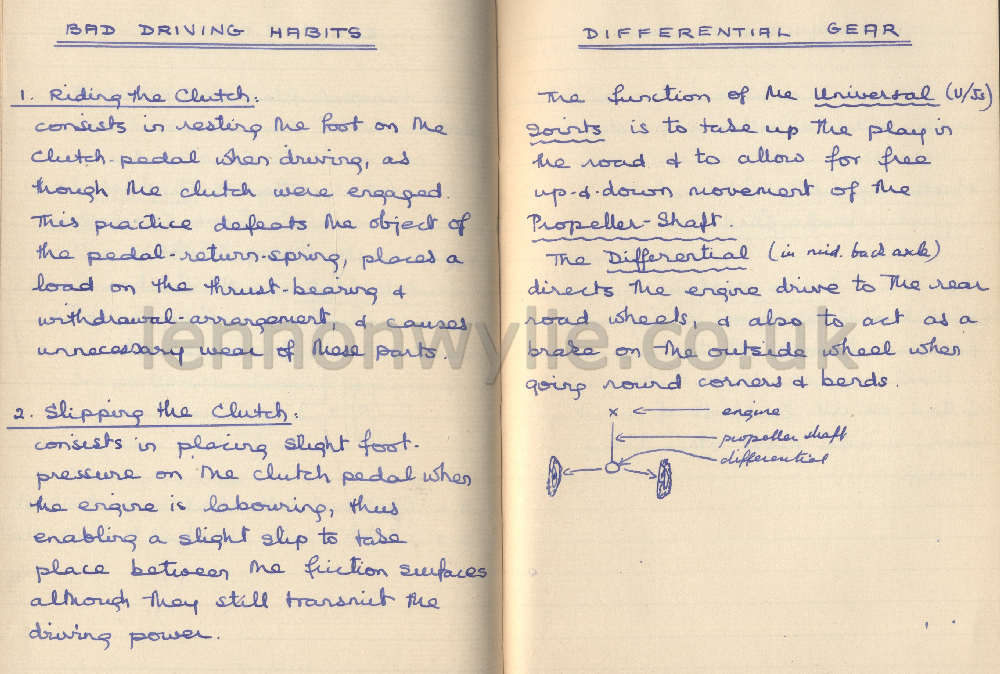 BAD DRIVING HABITS
1. Riding the Clutch:
consists in resting the foot on the
clutch-pedal when driving, as
though the clutch were engaged.
This practice defeats the object of
the pedal-return-spring, places a
load on the thrust-bearing &
withdrawal-arrangement, & causes
unnecessary wear of these parts.
2. Slipping the Clutch:
consists in placing slight foot-
pressure on the clutch pedal when
the engine is labouring, thus
enabling a slight slip to take
place between the friction surfaces
although they still transmit the
driving power.
DIFFERENTIAL GEAR
The function of the Universal (U/Js)
Joints is to take up the play in
the road & to allow for free
up-&-down movement of the
Propeller-Shaft.
The Differential (in mid. back axle)
directs the engine drive to the rear
road wheels, & also to act as a
brake on the outside wheel when
going round corners & bends.
x engine
propeller shaft
differential
lennonwylie.co.uk